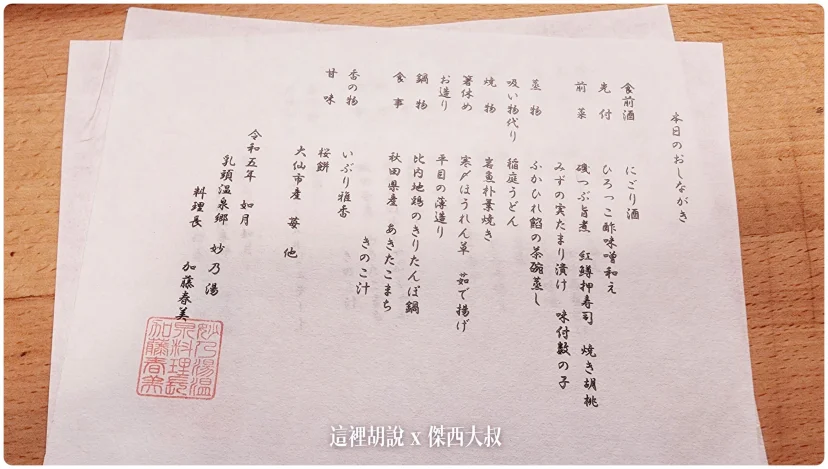 本日のおしながき
食前酒　にごり酒
先付　ひろっこ酢味噌和え
前菜　磯つぶ旨煮　紅鱒押寿司　焼き胡桃
みずの実たまり漬け　味付数の子
蒸物　ふかひれ餡の茶碗蒸し
吸い物代り　稲庭うどん
焼物　岩魚朴葉焼き
箸休め　寒〆ほうれん草　茹で揚げ
お造り　平目の薄造り
鍋物　比内地鶏のきりたんぽ鍋
食事　秋田県産　あきたこまち
きのこ汁
香の物　いぶり雅香
甘味　桜餅
大仙市産　苺　他
令和五年　如月
乳頭温泉郷　妙乃湯
料理長　加藤春美
妙乃湯温
泉料理長
加藤春美
這裡胡說 x 傑西大叔